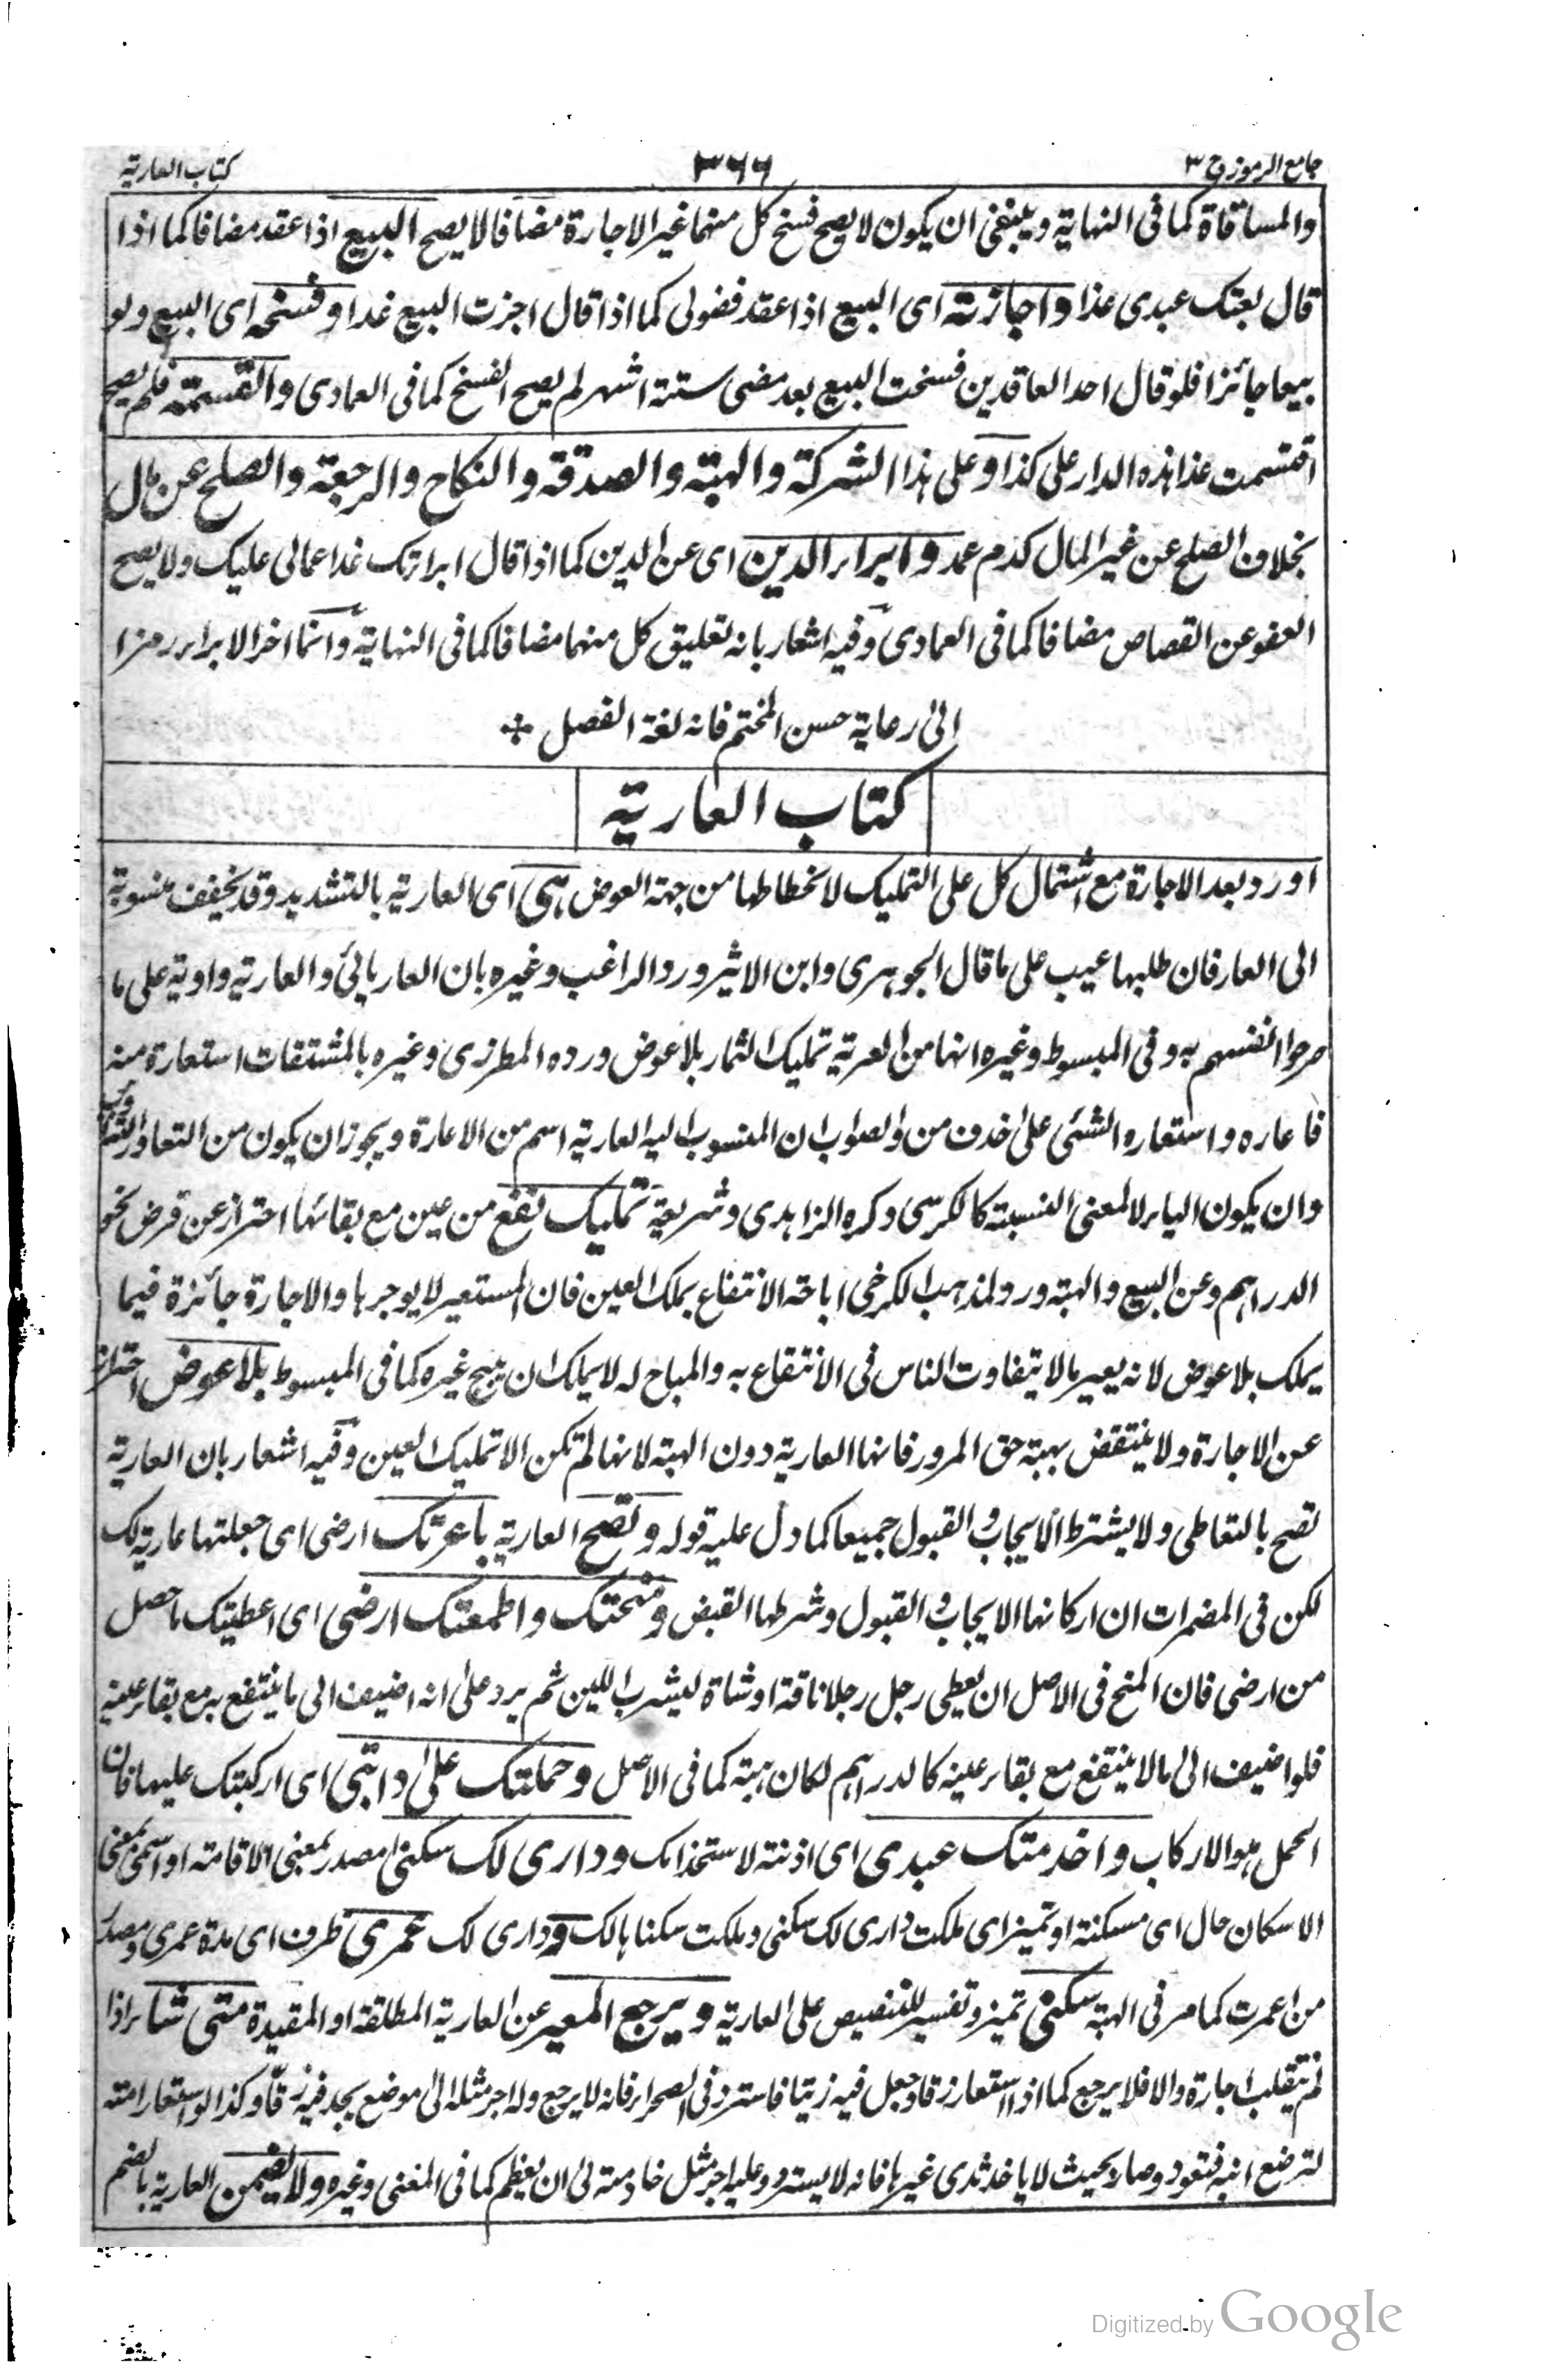 جامع الرموز ج ٣
٣٦٦
كتاب العارية
والمساقاة كما فى النهاية وينبغى ان يكون لا يصح فسخ كل منهما غير الاجارة مضافا لا يصح البيع اذا عقد مضافا كما اذا
قال بعتك عبدى غدا واجازته اى البيع اذا عقد فضولى كما اذا قال اجزت البيع غدا وفسخه اى البيع ولو
بيعا جائزا فلو قال احد العاقدين فسخت البيع بعد مضى ستة اشهر لم يصح الفسخ كما فى العمادى والقسمة فلم يصح
اقتسمت غدا هذه الدار على كذا وعلى هذا الشركة والهبة والصدقة والنكاح والرجعة والصلح عن مال
بخلاف الصلح عن غير المال كدم عمد وابراء الدين اى عن الدين كما اذا قال ابراتك غدا عمالى عليك ولا يصح
العفو عن القصاص مضافا كما فى العمادى وفيه اشعار بانه لتعليق كل منهما مضافا كما فى النهاية وانما اخر الابراء رمزا
الى رعاية حسن المختم فانه لغة الفصل
كتاب العارية
اورد بعد الاجارة مع اشتمال كل على التمليك لانحطاطها من جهة العوض هى اى العارية بالتشديد وقد يخفف منسوبة
الى العار فان طلبها عيب على ما قال الجوهرى وابن الاثير ورد الراغب وغيره بان العار يائى والعارية واوية على ما
صرحوا انفسهم به وفى المبسوط وغيره انها من العرية تمليك الثمار بلا عوض ورده المطرزى وغيره بالمشتقات استعارة منه
فاعاره واستعاره الشئى على حذف من والصواب ان المنسوب اليه العارية اسم من الاعارة ويجوز ان يكون من التعاور التناوب
وان يكون الياء لا لمعنى النسبة كالكرسى ذكره الزاهدى وشريعة تمليك نفع من عين مع بقائها احتراز عن قرض نحو
الدراهم وعن البيع والهبة ورد لمذهب الكرخى اباحة الانتفاع بملك العين فان المستعير لا يوجرها والاجارة جائزة فيما
يملك بلا عوض لانه يعير ما لا يتفاوت الناس فى الانتفاع به والمباح له لا يملك ان يبيح غيره كما فى المبسوط بلا عوض احتراز
عن الاجارة ولا ينتقض بهبة حق المرور فانها العارية دون الهبة لانها لم تكن الا تمليك العين وفيه اشعار بان العارية
تصح بالتعاطى ولا يشترط الايجاب والقبول جميعا كما دل عليه قوله وتصح العارية باعرتك ارضى اى جعلتها عارية لك
لكن فى المضمرات ان اركانها الايجاب والقبول وشرطها القبض ومنحتك واطعمتك ارضى اى اعطيتك ما حصل
من ارضى فان المنح فى الاصل ان يعطى رجل رجلا ناقة او شاة ليشرب اللبن ثم يرد على انه اضيف الى ما ينتفع به مع بقاء عينه
فلو اضيف الى ما لا ينتفع مع بقاء عينه كالدراهم لكان هبة كما فى الاصل وحملتك على دابتى اى اركبتك عليها فان
الحمل هو الاركاب واخدمتك عبدى اى اذنته لاستخدامك ودارى لك سكنى مصدر بمعنى الاقامة او اسمى بمعنى
الاسكان حال اى مسكنة او تميز اى ملكت دارى لك سكنى وملكت سكناها لك ودارى لك عمرى ظرف اى مدة عمرى ومصدر
من اعمرت كما مر فى الهبة سكنى تميز وتفسير للتنصيص على العارية ويرجع المعير عن العارية المطلقة او المقيدة متى شاء اذا
لم تنقلب اجارة والا فلا يرجع كما اذا استعار زقا وجعل فيه زيتا فاسترد فى الصحراء فانه لا يرجع وله اجر مثله الى موضع يجد فيه زقا وكذا لو استعار امته
لترضع ابنه فتعود وصار بحيث لا ياخذ ثدى غيرها فانه لا يسترد وعليه اجر مثل خادمته الى ان يفطم كما فى المغنى وغيره ولا يضمن العارية بالضم
Digitized by Google